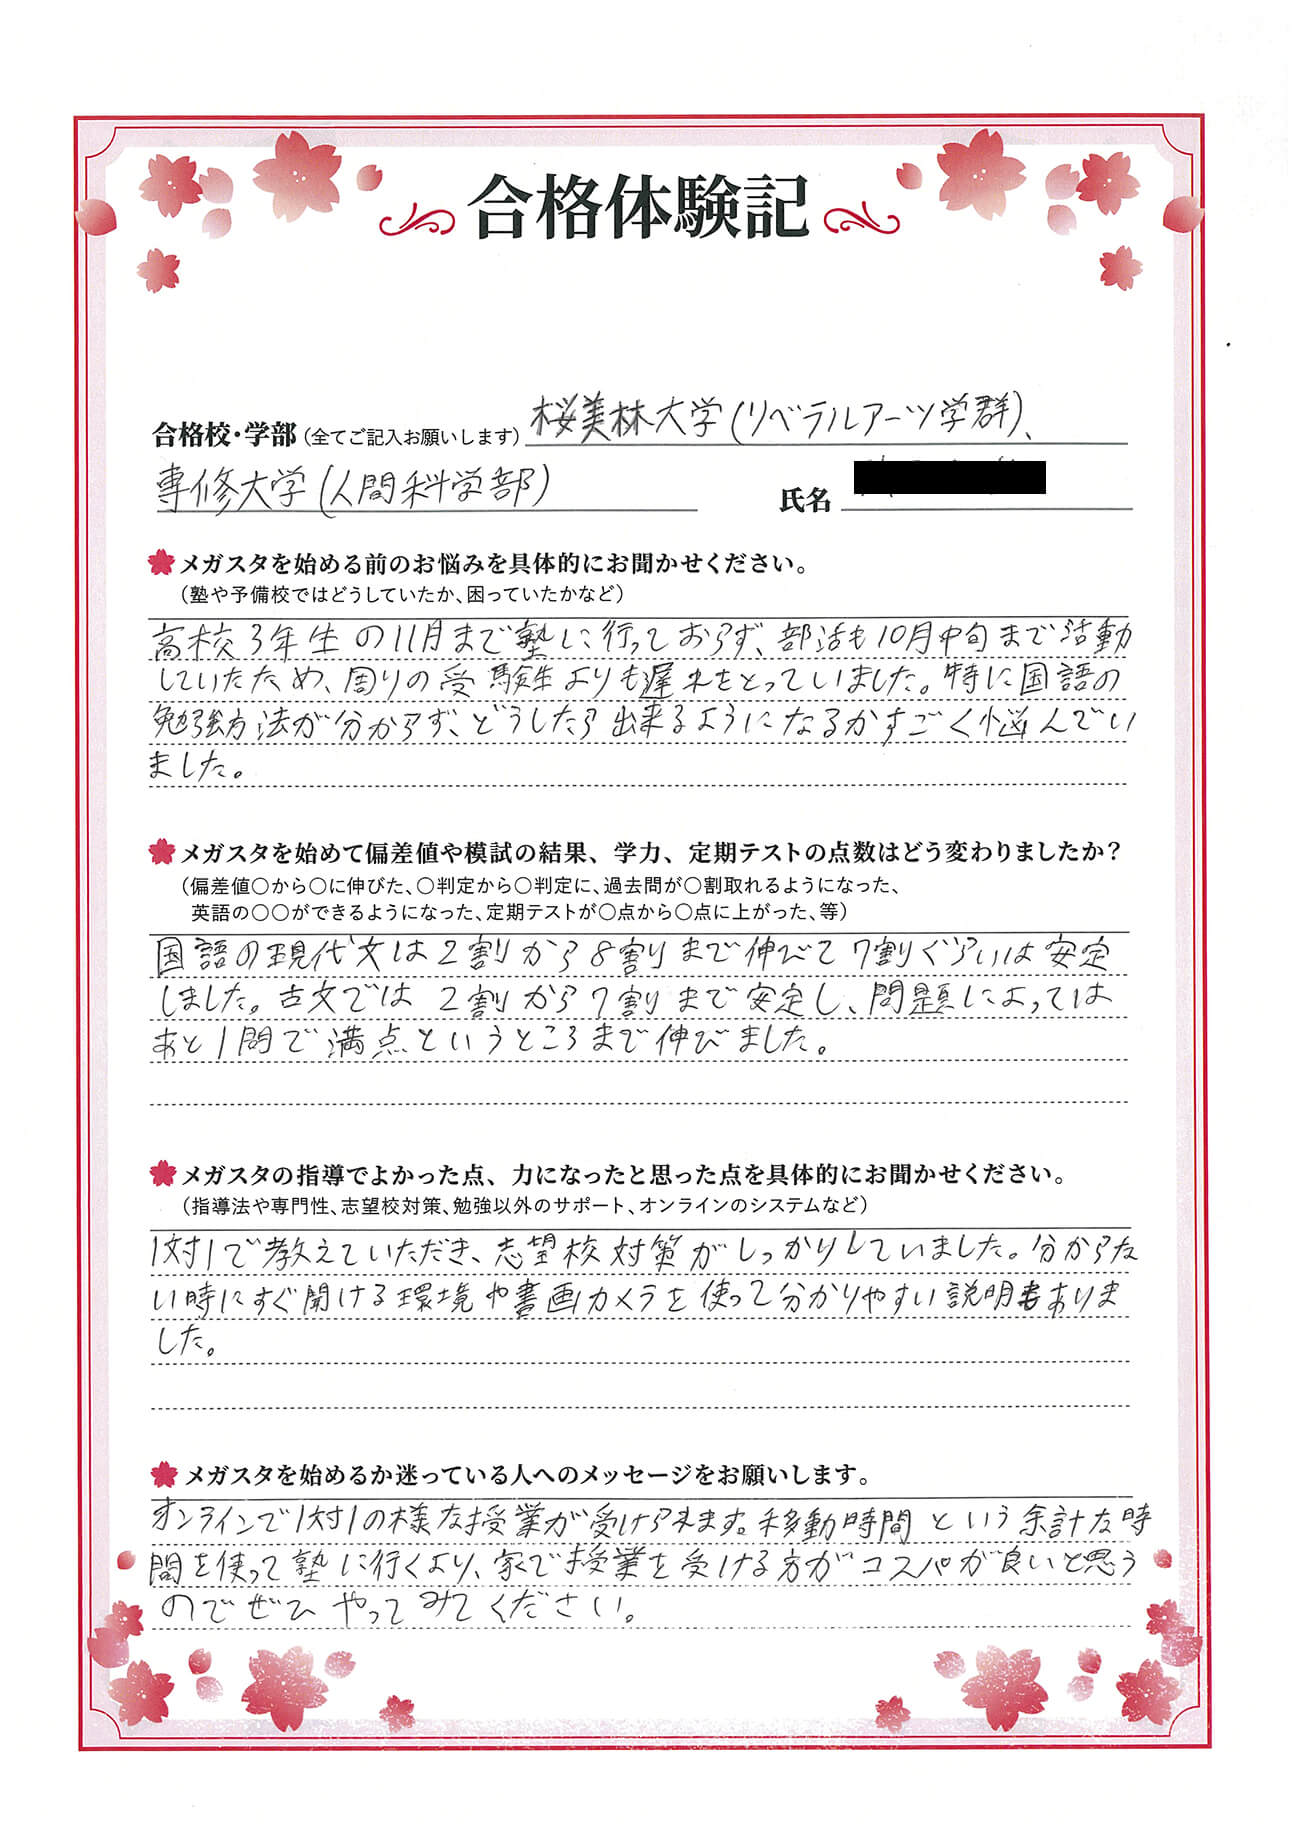 合格体験記
合格校・学部(全てご記入お願いします) 桜美林大学(リベラルアーツ学群)、
専修大学(人間科学部) 氏名
メガスタを始める前のお悩みを具体的にお聞かせください。
(塾や予備校ではどうしていたか、困っていたかなど)
高校3年生の11月まで塾に行っておらず、部活も10月中旬まで活動
していたため、周りの受験生よりも遅れをとっていました。特に国語の
勉強方法が分からず、どうしたら出来るようになるかすごく悩んでい
ました。
メガスタを始めて偏差値や模試の結果、学力、定期テストの点数はどう変わりましたか?
(偏差値〇から〇に伸びた、〇判定から〇判定に、過去問が〇割取れるようになった、
英語の〇〇ができるようになった、定期テストが〇点から〇点に上がった、等)
国語の現代文は2割から8割りまで伸びて7割ぐらいは安定
しました。古文では2割から7割りまで安定し、問題によっては
あと1問で満点というところまで伸びました。
メガスタの指導でよかった点、力になったと思った点を具体的にお聞かせください。
(指導法や専門性、志望校対策、勉強以外のサポート、オンラインのシステムなど)
1対1で教えていただき、志望校対策がしっかりしていました。分からな
い時にすぐ聞ける環境や書画カメラを使って分かりやすい説明もありま
した。
メガスタを始めるか迷っている人へのメッセージをお願いします。
オンラインで1対1の様な授業が受けられます。移動時間という余計な時
間を使って塾に行くより、家で授業を受ける方がコスパが良いと思う
のでぜひやってみてください。